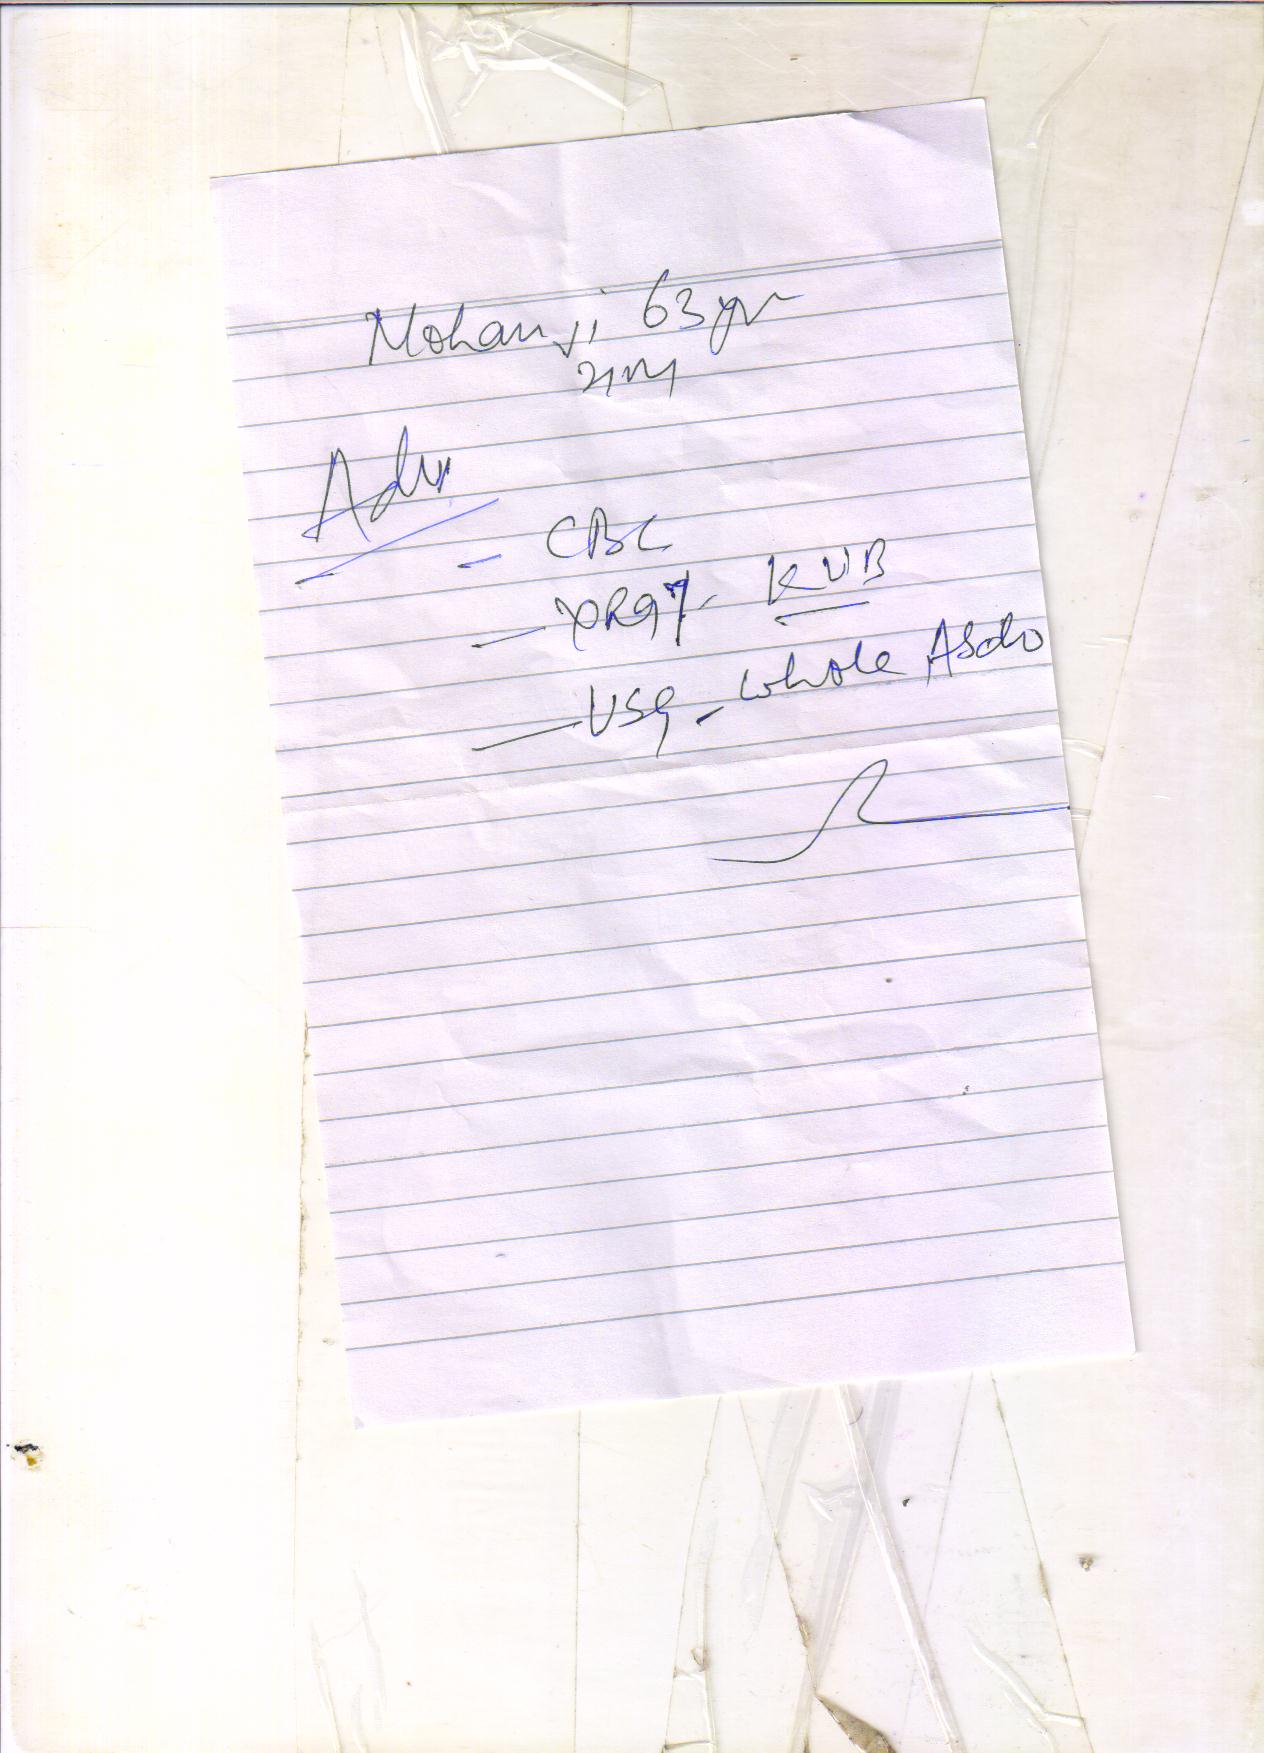 Mohan ji 63 yr
Adv
- CBC
- XRay - KUB
- USG - whole Abdo